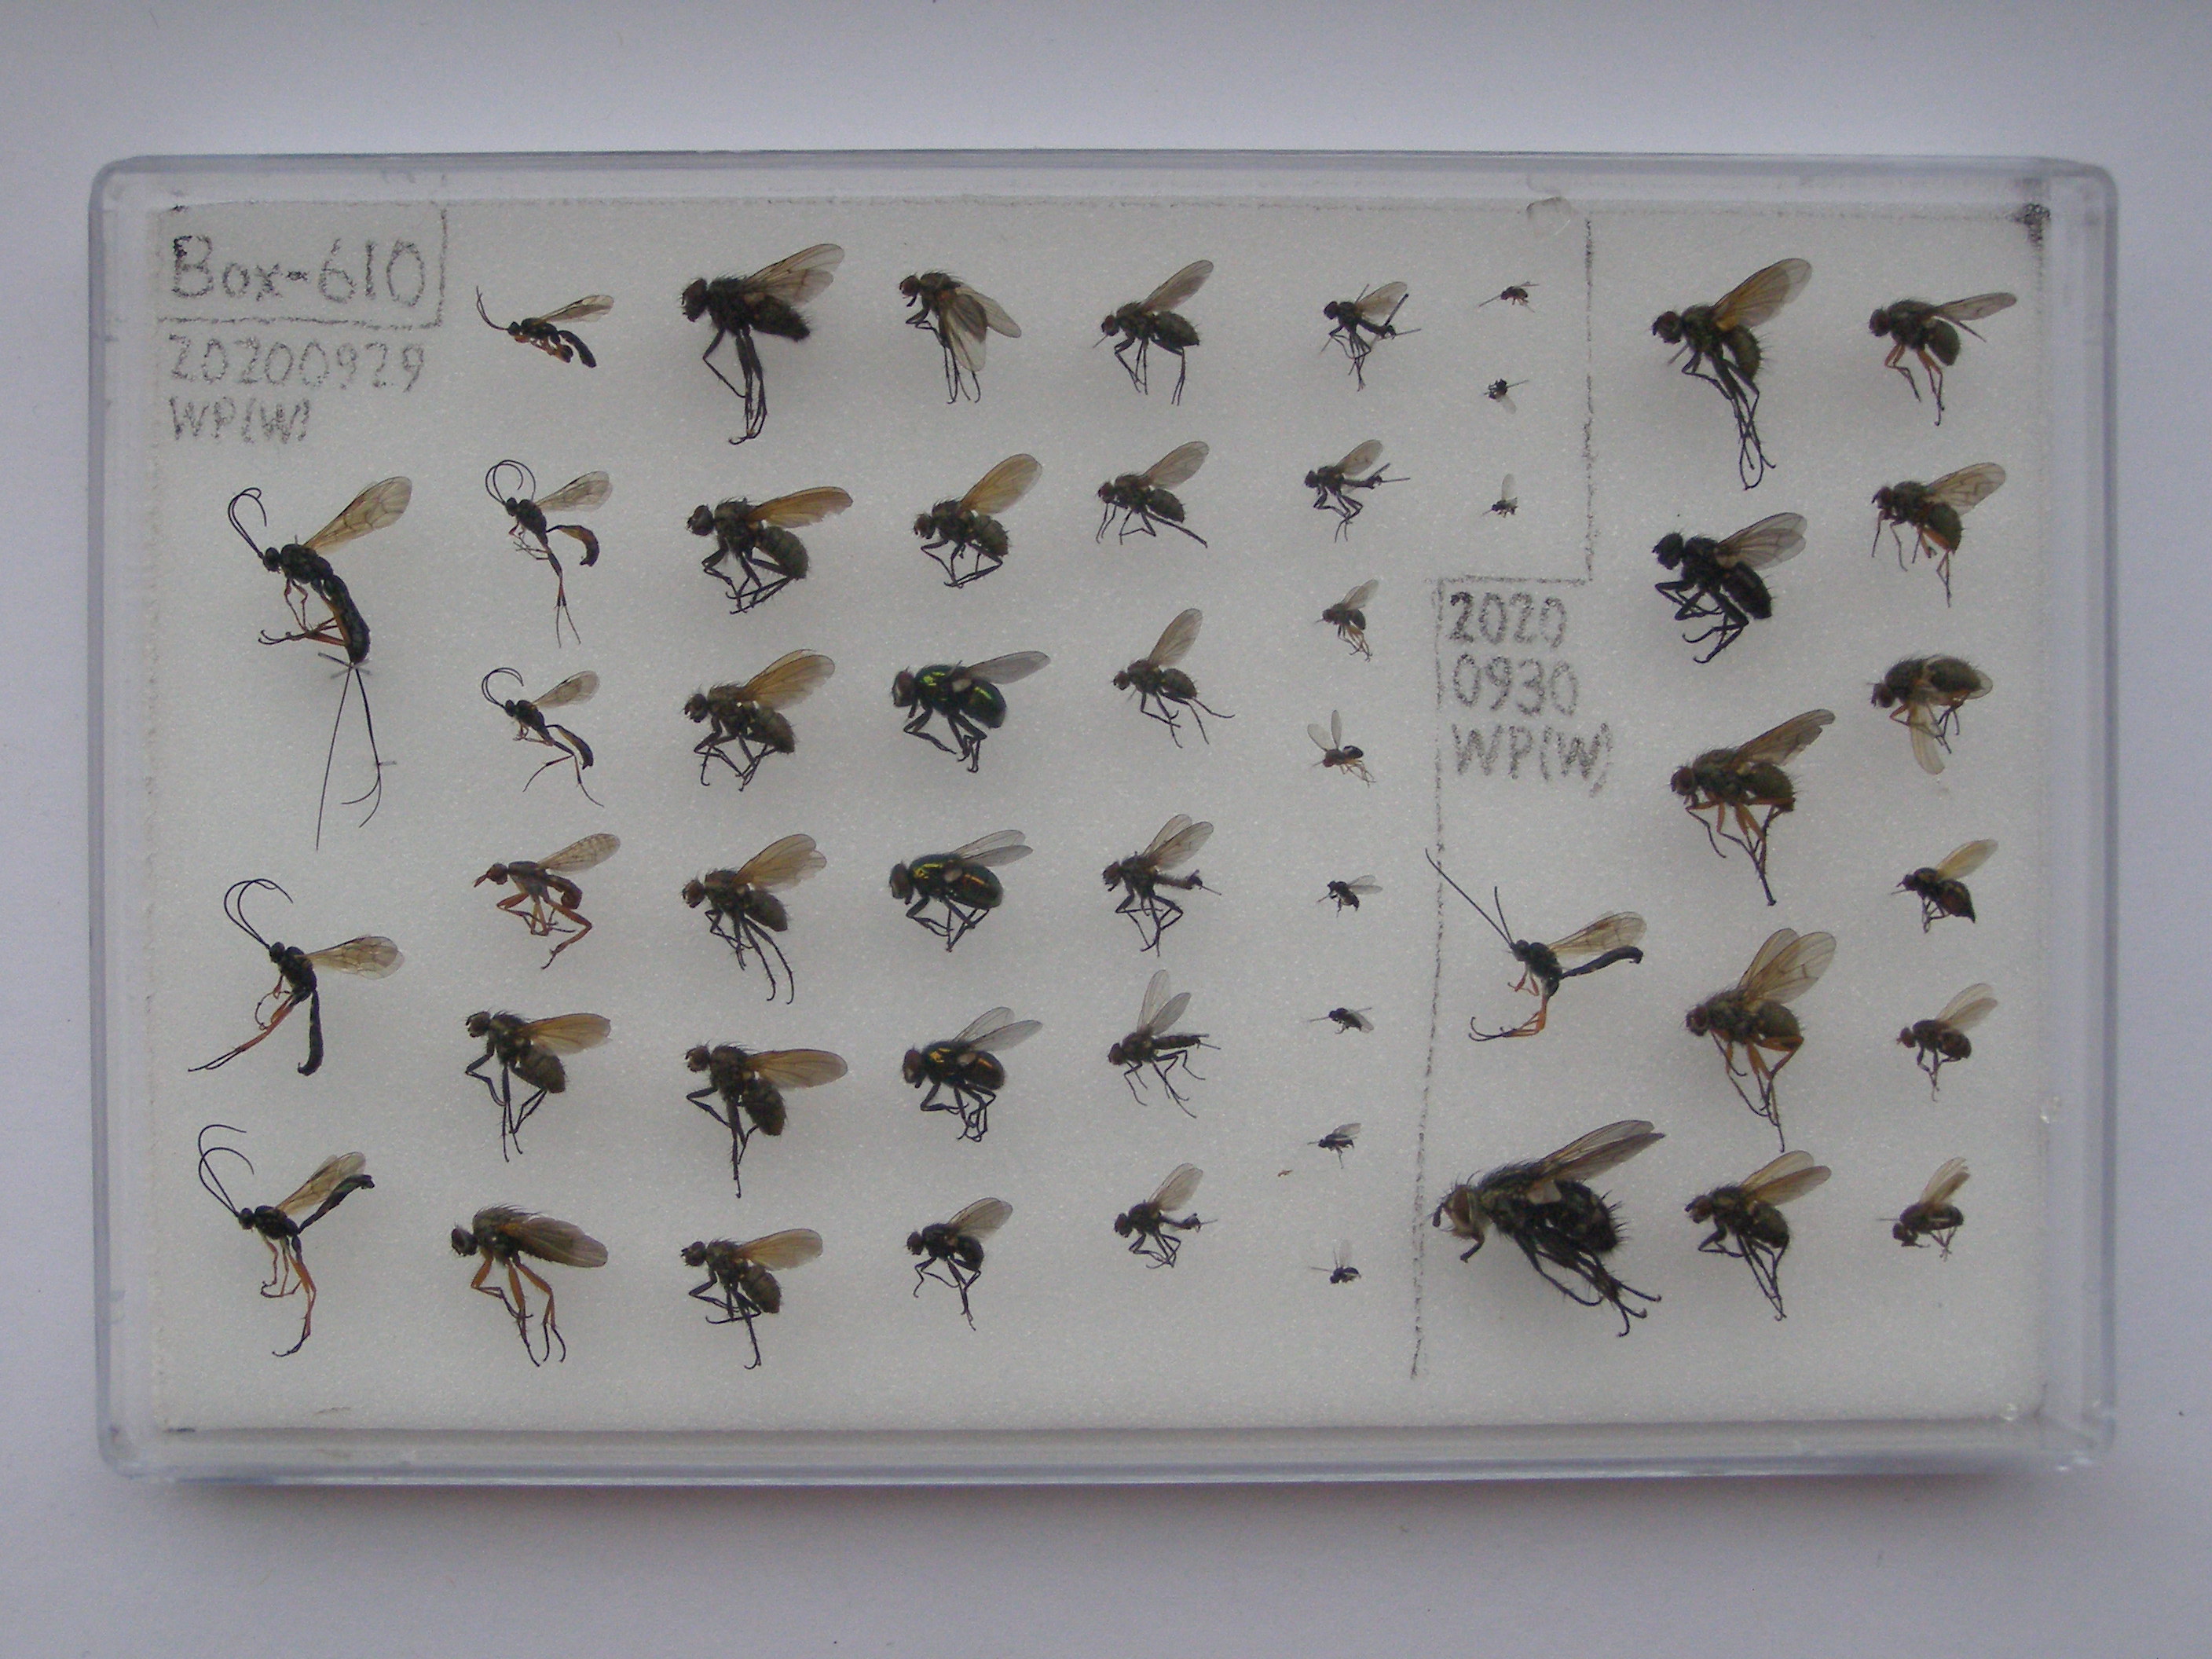 Box-610
20200929
WP(W)
2020
0930
WP(W)